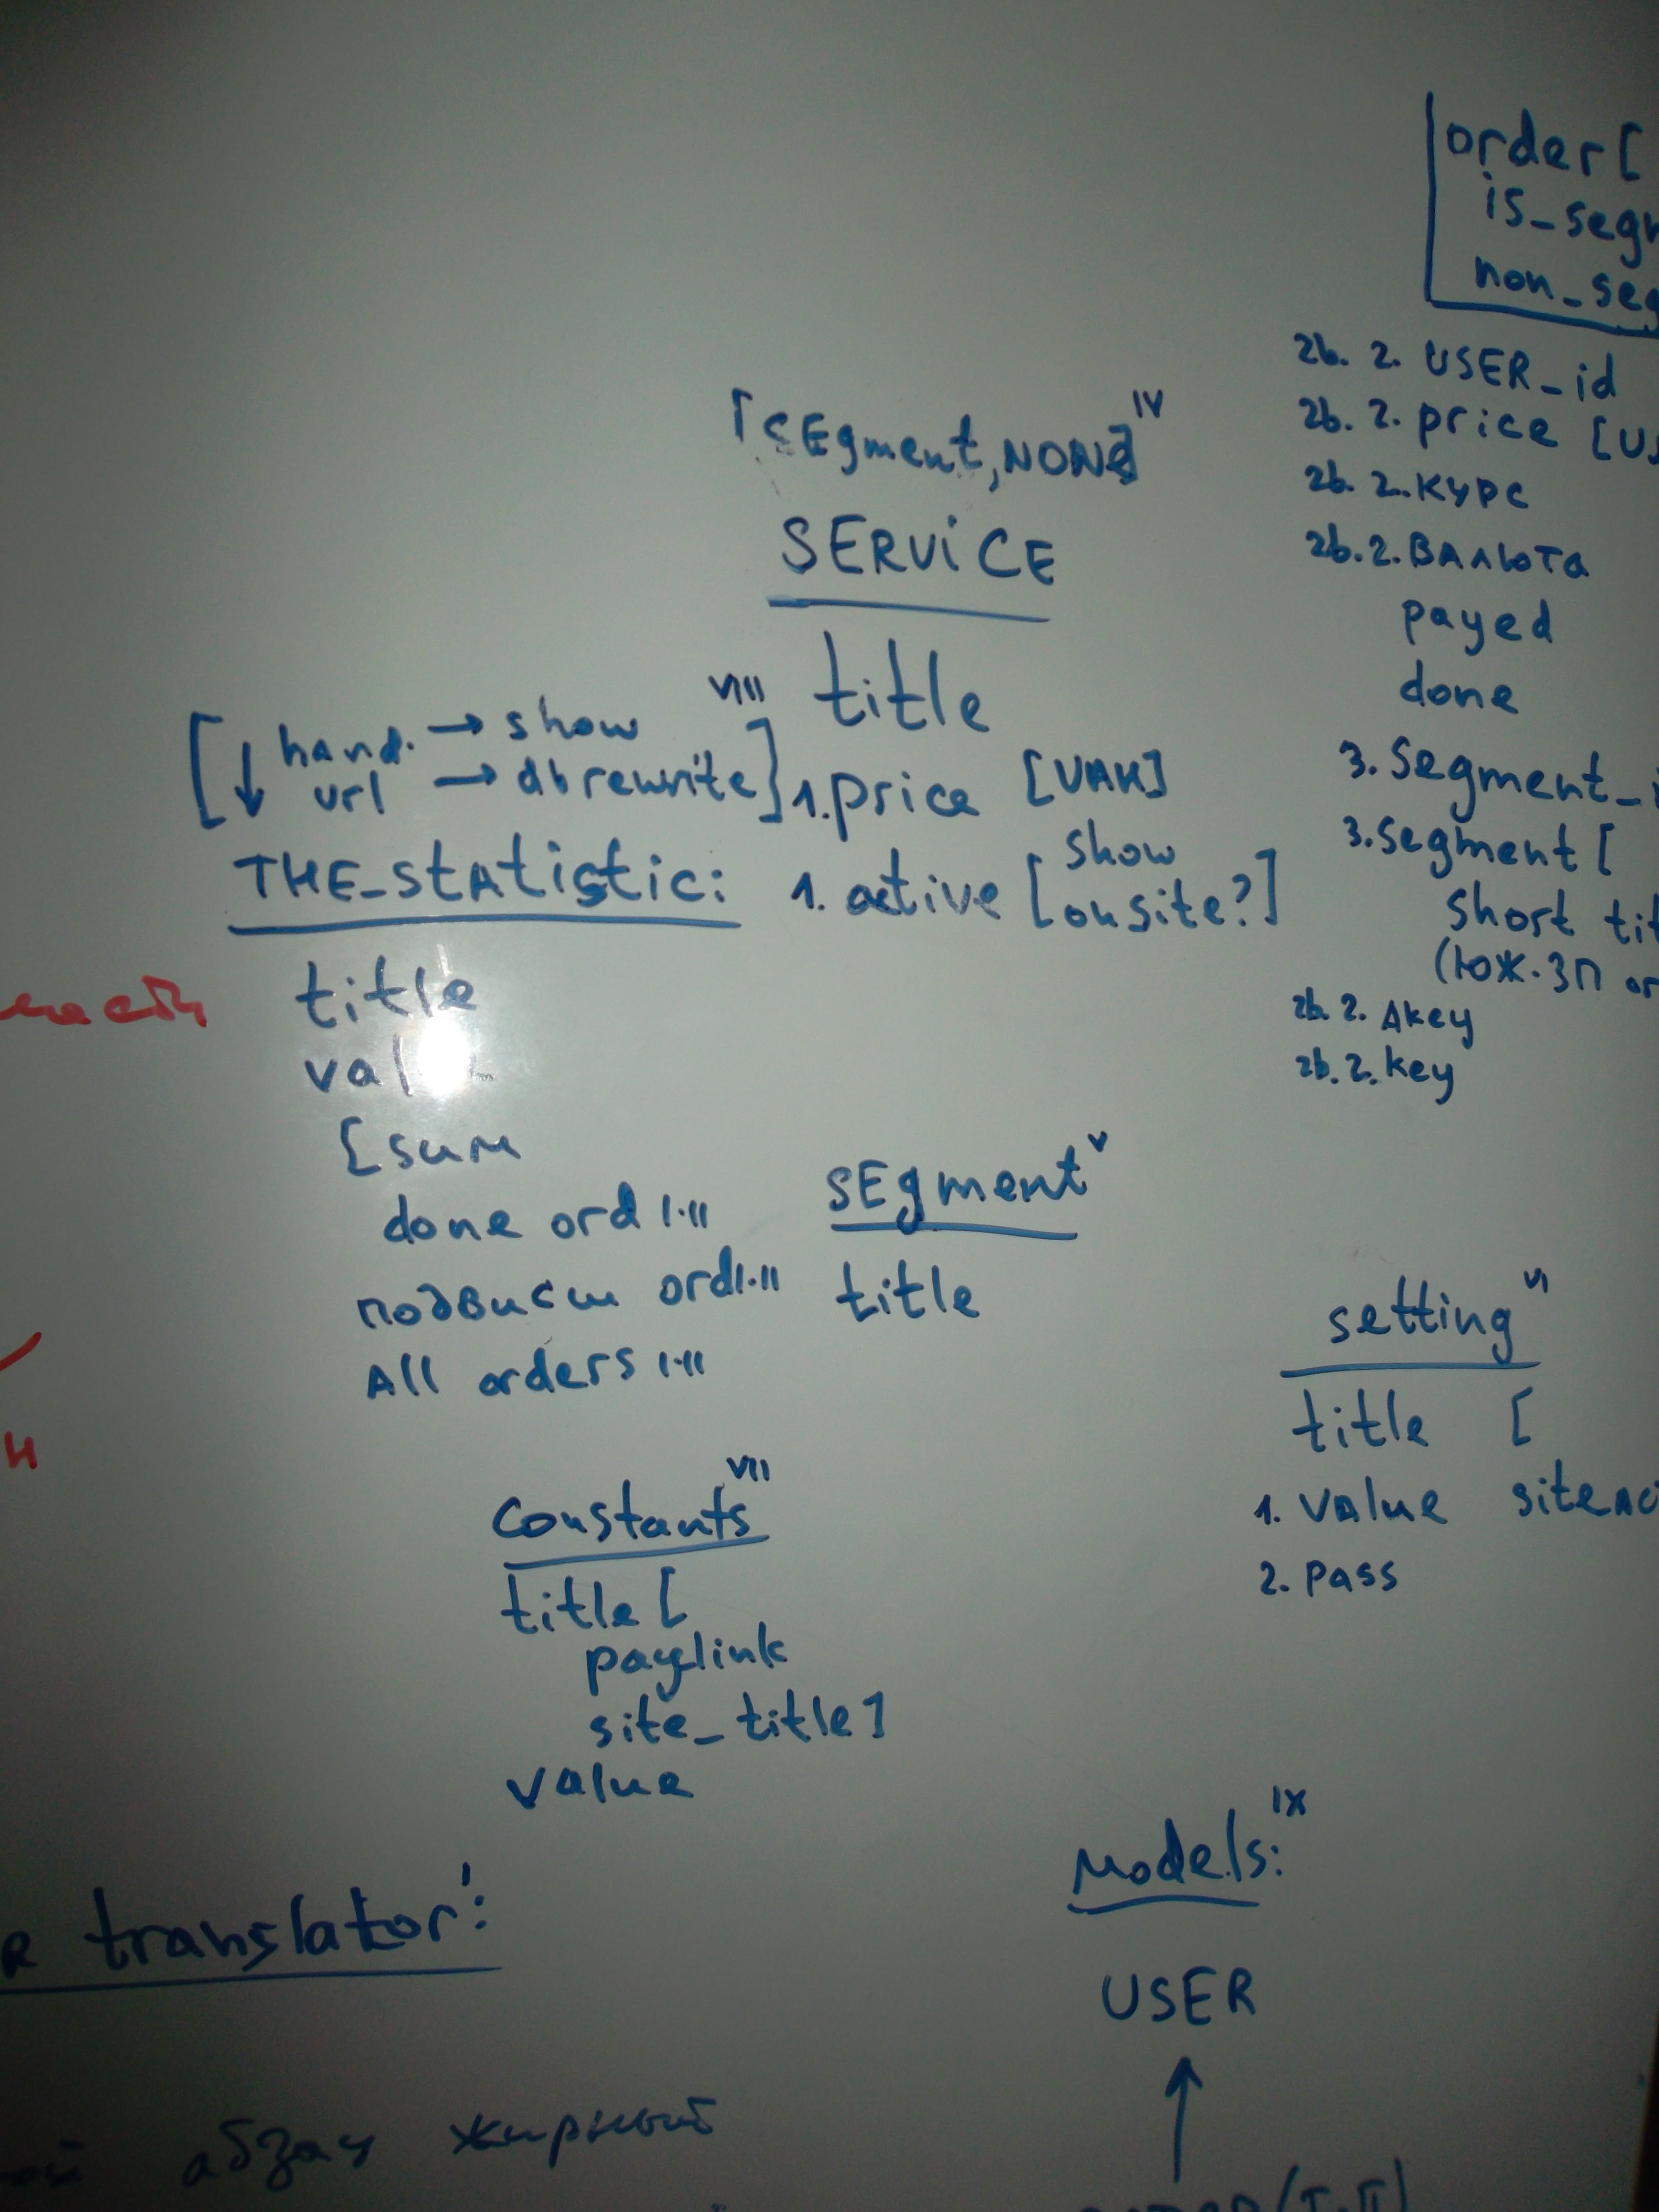 order [
is_seg
non_seg
2b. 2. USER_id
2b. 2. price [U
2b. 2. курс
2b. 2. ВАЛЮТА
payed
done
3. Segment_i
3. segment [
short tit
(юж. ЗП or
2b. 2. Akey
2b. 2. key
[SEgment, NONE] IV
SERVICE
title
1. price [UAH]
1. active [show onsite?]
[↓ hand. → show VIII
url → db rewrite]
THE_statistic:
title
val
[sum
done ord I-II
подвисш ord I-II
All orders I-II
SEgment V
title
setting VI
title [
1. value siteAc
2. pass
Constants VII
title [
paylink
site_title]
value
R translator':
абзац жирный
Models: IX
USER
↑
(I-II)